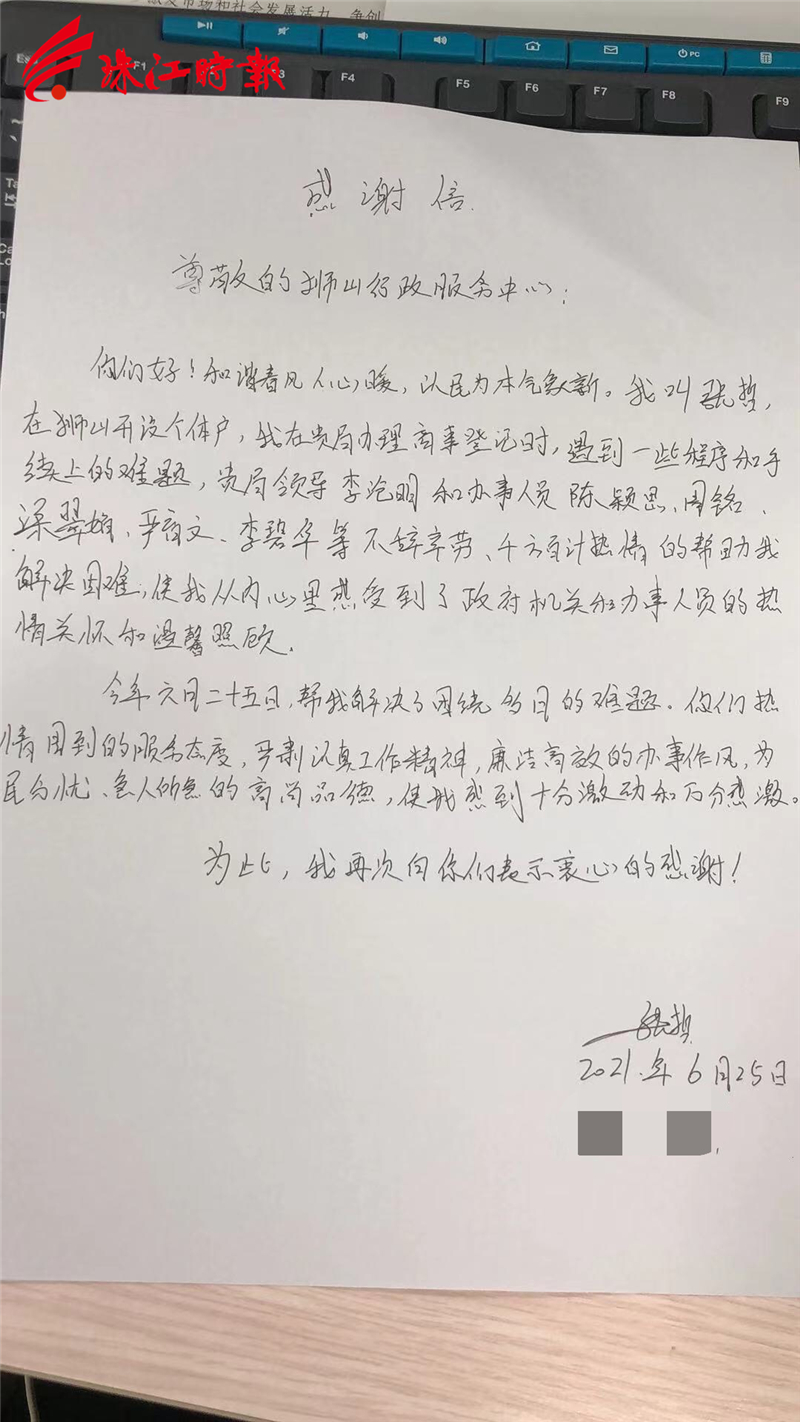 激发市场和社会发展活力，争创
珠江時報
F1
F3
F4
F5
F6
F7
F8
F9
PC
感谢信.
尊敬的狮山行政服务中心：
你们好！和谐春风人心暖，以民为本气象新。我叫张哲，
在狮山开设个体户，我在贵局办理商事登记时，遇到一些程序和手
续上的难题，贵局领导李沧明和办事人员陈颖思、周铭、
梁翠婚、严雨文、李碧华等不辞辛劳、千方百计热情的帮助我
解决困难，使我从内心里感受到了政府机关和办事人员的热
情关怀和温馨照顾.
今年六月二十五日，帮我解决了困绕多日的难题。你们热
情周到的服务态度，严肃认真工作精神，廉洁高效的办事作风，为
民分忧、急人所急的高尚品德，使我感到十分激动和万分感激。
为此，我再次向你们表示衷心的感谢！
张哲
2021.年6月25日